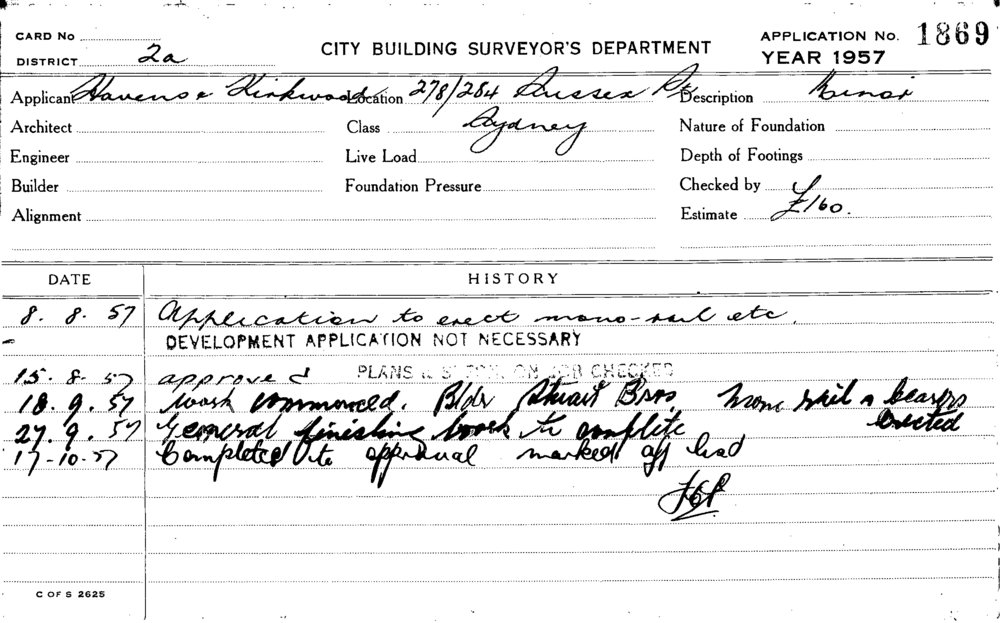 CARD No
CITY BUILDING SURVEYOR'S DEPARTMENT
APPLICATION No. 1869
DISTRICT 2a
YEAR 1957
Applicant Havens & Kirkwood Location 278/284 Sussex St Description Minor
Architect Class Sydney Nature of Foundation
Engineer Live Load Depth of Footings
Builder Foundation Pressure Checked by
Alignment Estimate £160.
DATE HISTORY
8. 8. 57 Application to erect mono-rail etc.
DEVELOPMENT APPLICATION NOT NECESSARY
15. 8. 57 approved PLANS ON JOB CHECKED
18. 9. 57 Work commenced. Bldr Stuart Bros mono rail & bearers erected
27. 9. 57 General finishing work to complete
17-10-57 Completed to approval marked off
C OF S 2625